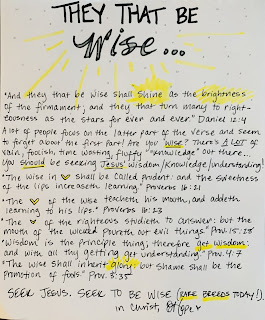 THEY THAT BE
Wise...
"And they that be wise shall shine as the brightness
of the firmament; and they that turn many to righ-
teousness as the stars for ever and ever." Daniel 12:4
A lot of people focus on the latter part of the verse and seem
to forget about the first part! Are you wise? There's A LOT of
vain, foolish, time wasting, fluffy "knowledge" out there...
You should be seeking Jesus' wisdom/knowledge/understanding!
"The wise in shall be called prudent: and the sweetness
of the lips increaseth learning." Proverbs 16:21
"The of the wise teacheth his mouth, and addeth
learning to his lips." Proverbs 16:23
"The of the righteous studieth to answer: but the
mouth of the wicked poureth out evil things." Prov. 15:28
"Wisdom is the principle thing; therefore get wisdom:
and with all thy getting get understanding." Prov. 4:7
"The wise shall inherit glory: but shame shall be the
promotion of fools." Prov. 3:35
SEEK JESUS. SEEK TO BE WISE TODAY!).
in Christ,